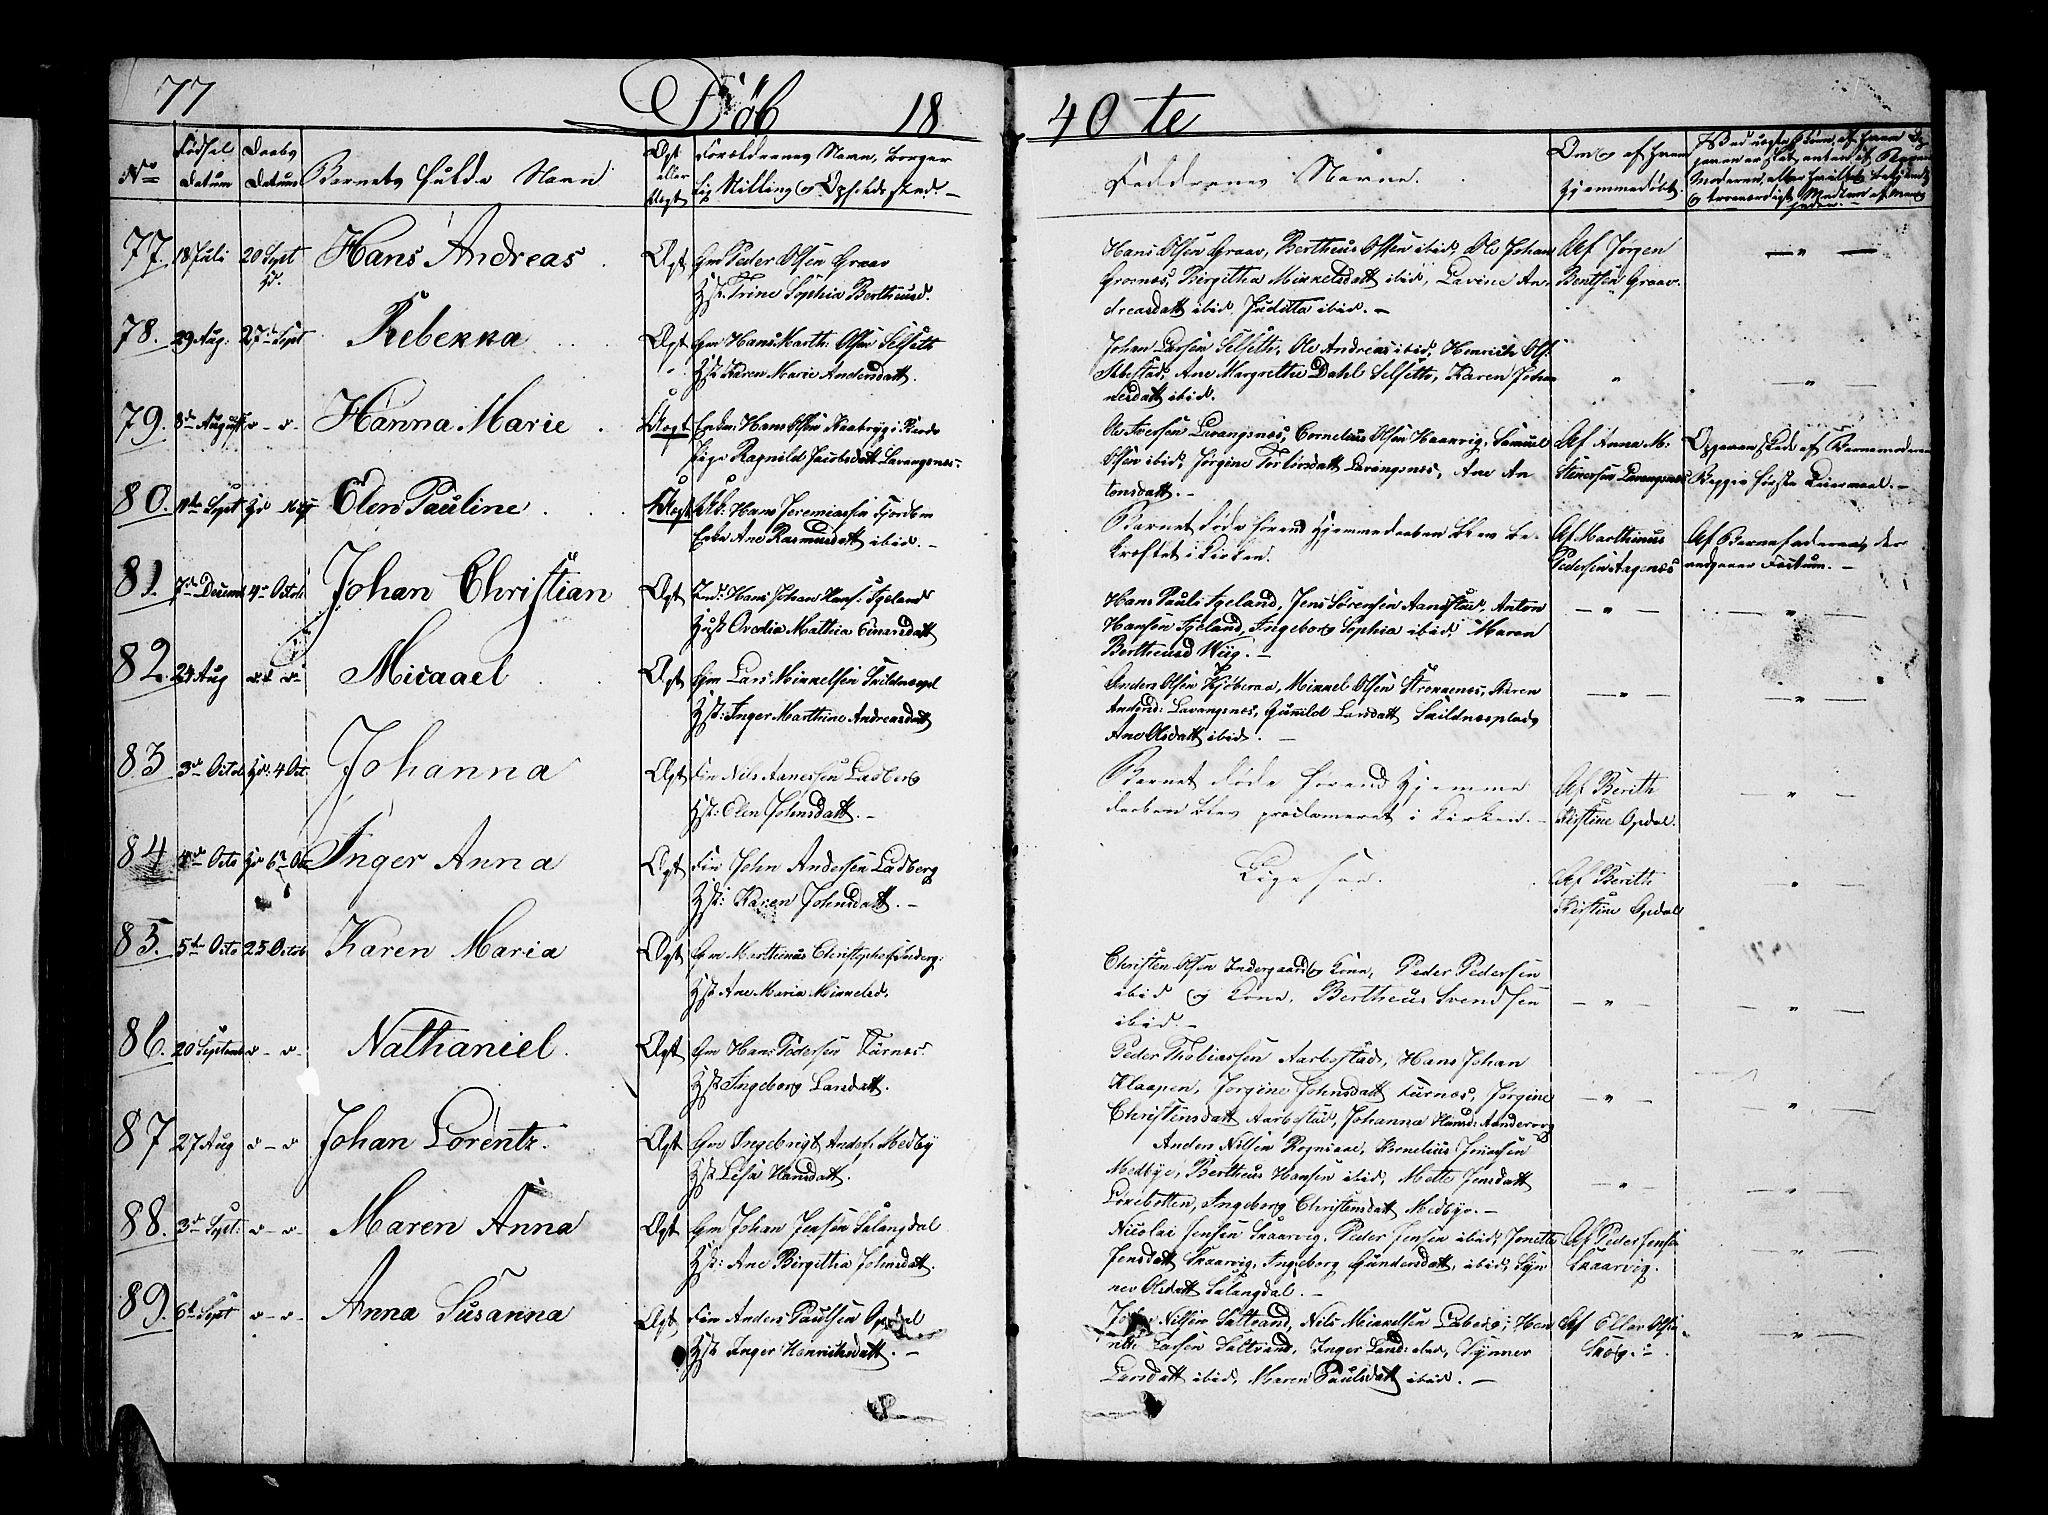 77 Døb 18 40 te
No
Fødsels Datum
Daabs Datum
Barnets fulde Navn
Ægt eller Uægt
Forældrenes Navn, borger
lig Stilling og Opholdssted. -
Faddrenes Navne.
Om og af hvem
hjemmedøbt.
77. 18 Juli 20 Sept Hd. Hans Andreas. Ægt
Gm Peder Olsen Graav
Hst. Trine Sophia Bertheusd.
Hans Olsen Graav, Bertheus Olsen ibid, Ole Johan
Groenes, Birgitha Mikkelsdatt ibid, Lavine An-
dreasdatt ibid. Juditta ibid. -
Af Jørgen
Bentsen Graav.
- " -
78. 29 Aug. 27de Sept Rebekka Ægt
Gm Hans Marth. Olsen Selseth
Hst Karen Marie Andersdatt.
Johan Larsen Selseth, Ole Andreas ibid, Henrich Ols.
Ane Margrethe Dahl Selseth, Karen Johan
nesdatt ibid.
" - " -
79. 8de August " - " - Hanna Marie Uægt
Hans Olsen
Pige Ragnild Jacobsdatt Lavangsnes.
Ole Iversen Lavangsnes, Cornelius Olsen Haarvig, Samuel
Olsen ibid, Jørgine Lavangsnes, Ane An
tonsdatt. -
Af Anna M.
Steenersen Lavangsnes
af Barnemoderen
Begges første Leiermaal. -
80. Sept Elen Pauline Uægt
Hans Jeremiassen Fjordbm
Enke Ane Rasmusdatt ibid. -
Barnet døde førend Hjemmedaaben blev be-
kræftet i Kirken.
Af Marthinus
Pedersen Aagenes
Af Barnefaderen, der
angiver Factum. -
81. 7de Decemb 4de Octob Johan Christian Ægt
Hans Johan Hans. Igeland
Hust Ovedia Mathia Einarsdatt
Hans Pauli Igeland, Jens Sørensen Aanstad, Anton
Hansen Igeland, Ingeborg Sophia ibid, Maren
Bertheusd Wiig. -
- " - - " -
82. 24 Aug " - " - Micaael Ægt
Gm Lars Mikkelsen
Hst: Inger Marthine Andreasdatt
Anders Olsen Kjøberaa, Mikkel Olsen Strokkenes, Karen
Andersd: Lavangsnes, Gunild Larsdatt
Ane Olsdatt ibid. -
- " - - " -
83 3de Octob Hd. 4 Oct. Johanna Ægt
Fin Nils Larsen Ladberg
Hst: Elen Johnsdatt. -
Barnet døde førend Hjemme
daaben blev proclameret i Kirken. -
Af Berith
Kirstine Opdal.
- " -
84 4de Octo Hd 6te Oct Inger Anna Ægt
Fin John Andersen Ladberg
Hst: Karen Johnsdatt. -
Ligesaa.
Af Berith
Kirstine Opdal
- " -
85. 5te Octo 25 Octob Karen Maria Ægt
Gm Marthinus Christophers Inderg:
Hst Ane Maria Mikkelsd.
Christen Olsen Indergaard og Kone, Peder Pedersen
ibid og Kone, Bertheus Svendsen
ibid. -
- " - - " -
86. 20 Septemb " - " - Nathaniel. Ægt
Gm Hans Pedersen Turnes.
Hst Ingeborg Larsdatt.
Peder Thobiassen Aarbostad, Hans Johan
Klaapen, Jørgine Johnsdatt Turnes, Jørgine
Christensdatt Aarbostad, Johanna Hansd:
- " - "
87 27 Aug " - " Johan Lorentz. Ægt
Gm Ingebrigt Anders. Medby
Hst Lisa Hansdatt.
Anders Nilsen Rognaae, Kornelius Jensen
Medbye, Bertheus Hansen ibid, Mette Jensdatt
Løxebotten, Ingeborg Christensdatt Medbye. -
- " - - " -
88. 3de Sept: " - " - Maren Anna Ægt
Gm Johan Jensen Salangdal
Hst: Ane Birgitha Johnsdatt.
Nicolai Jensen Skaarvig, Peder Jensen ibid, Jonetta
Jensdatt Skaarvig, Ingeborg Gundersdatt, ibid, Syn
nev Olsdatt Salangdal. -
Af Peder Jensen
Skaarvig.
- " -
89. 6te Sept " - " - Anna Susanna Ægt
Fin Anders Paulsen Opdal
Hst Inger Henrichsdatt. -
Nilsen Saltvand, Nils Mikkelsen Laberg, Hen
Larsen Saltvand, Inger Synner
Larsdatt ibid, Maren Paulsdatt ibid. -
Af Eller Olsen
Skog. -
- " -